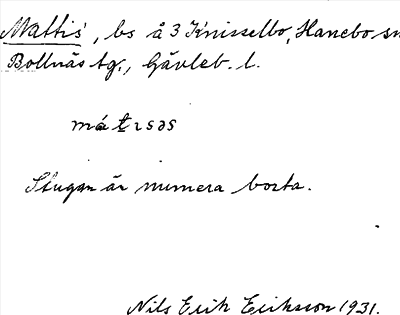 Mattis', bs å 3 Knisselbo, Hanebo sn
Bollnäs tg., Gävleb. l.
Stugan är numera borta.
Nils Erik Eriksson 1931.